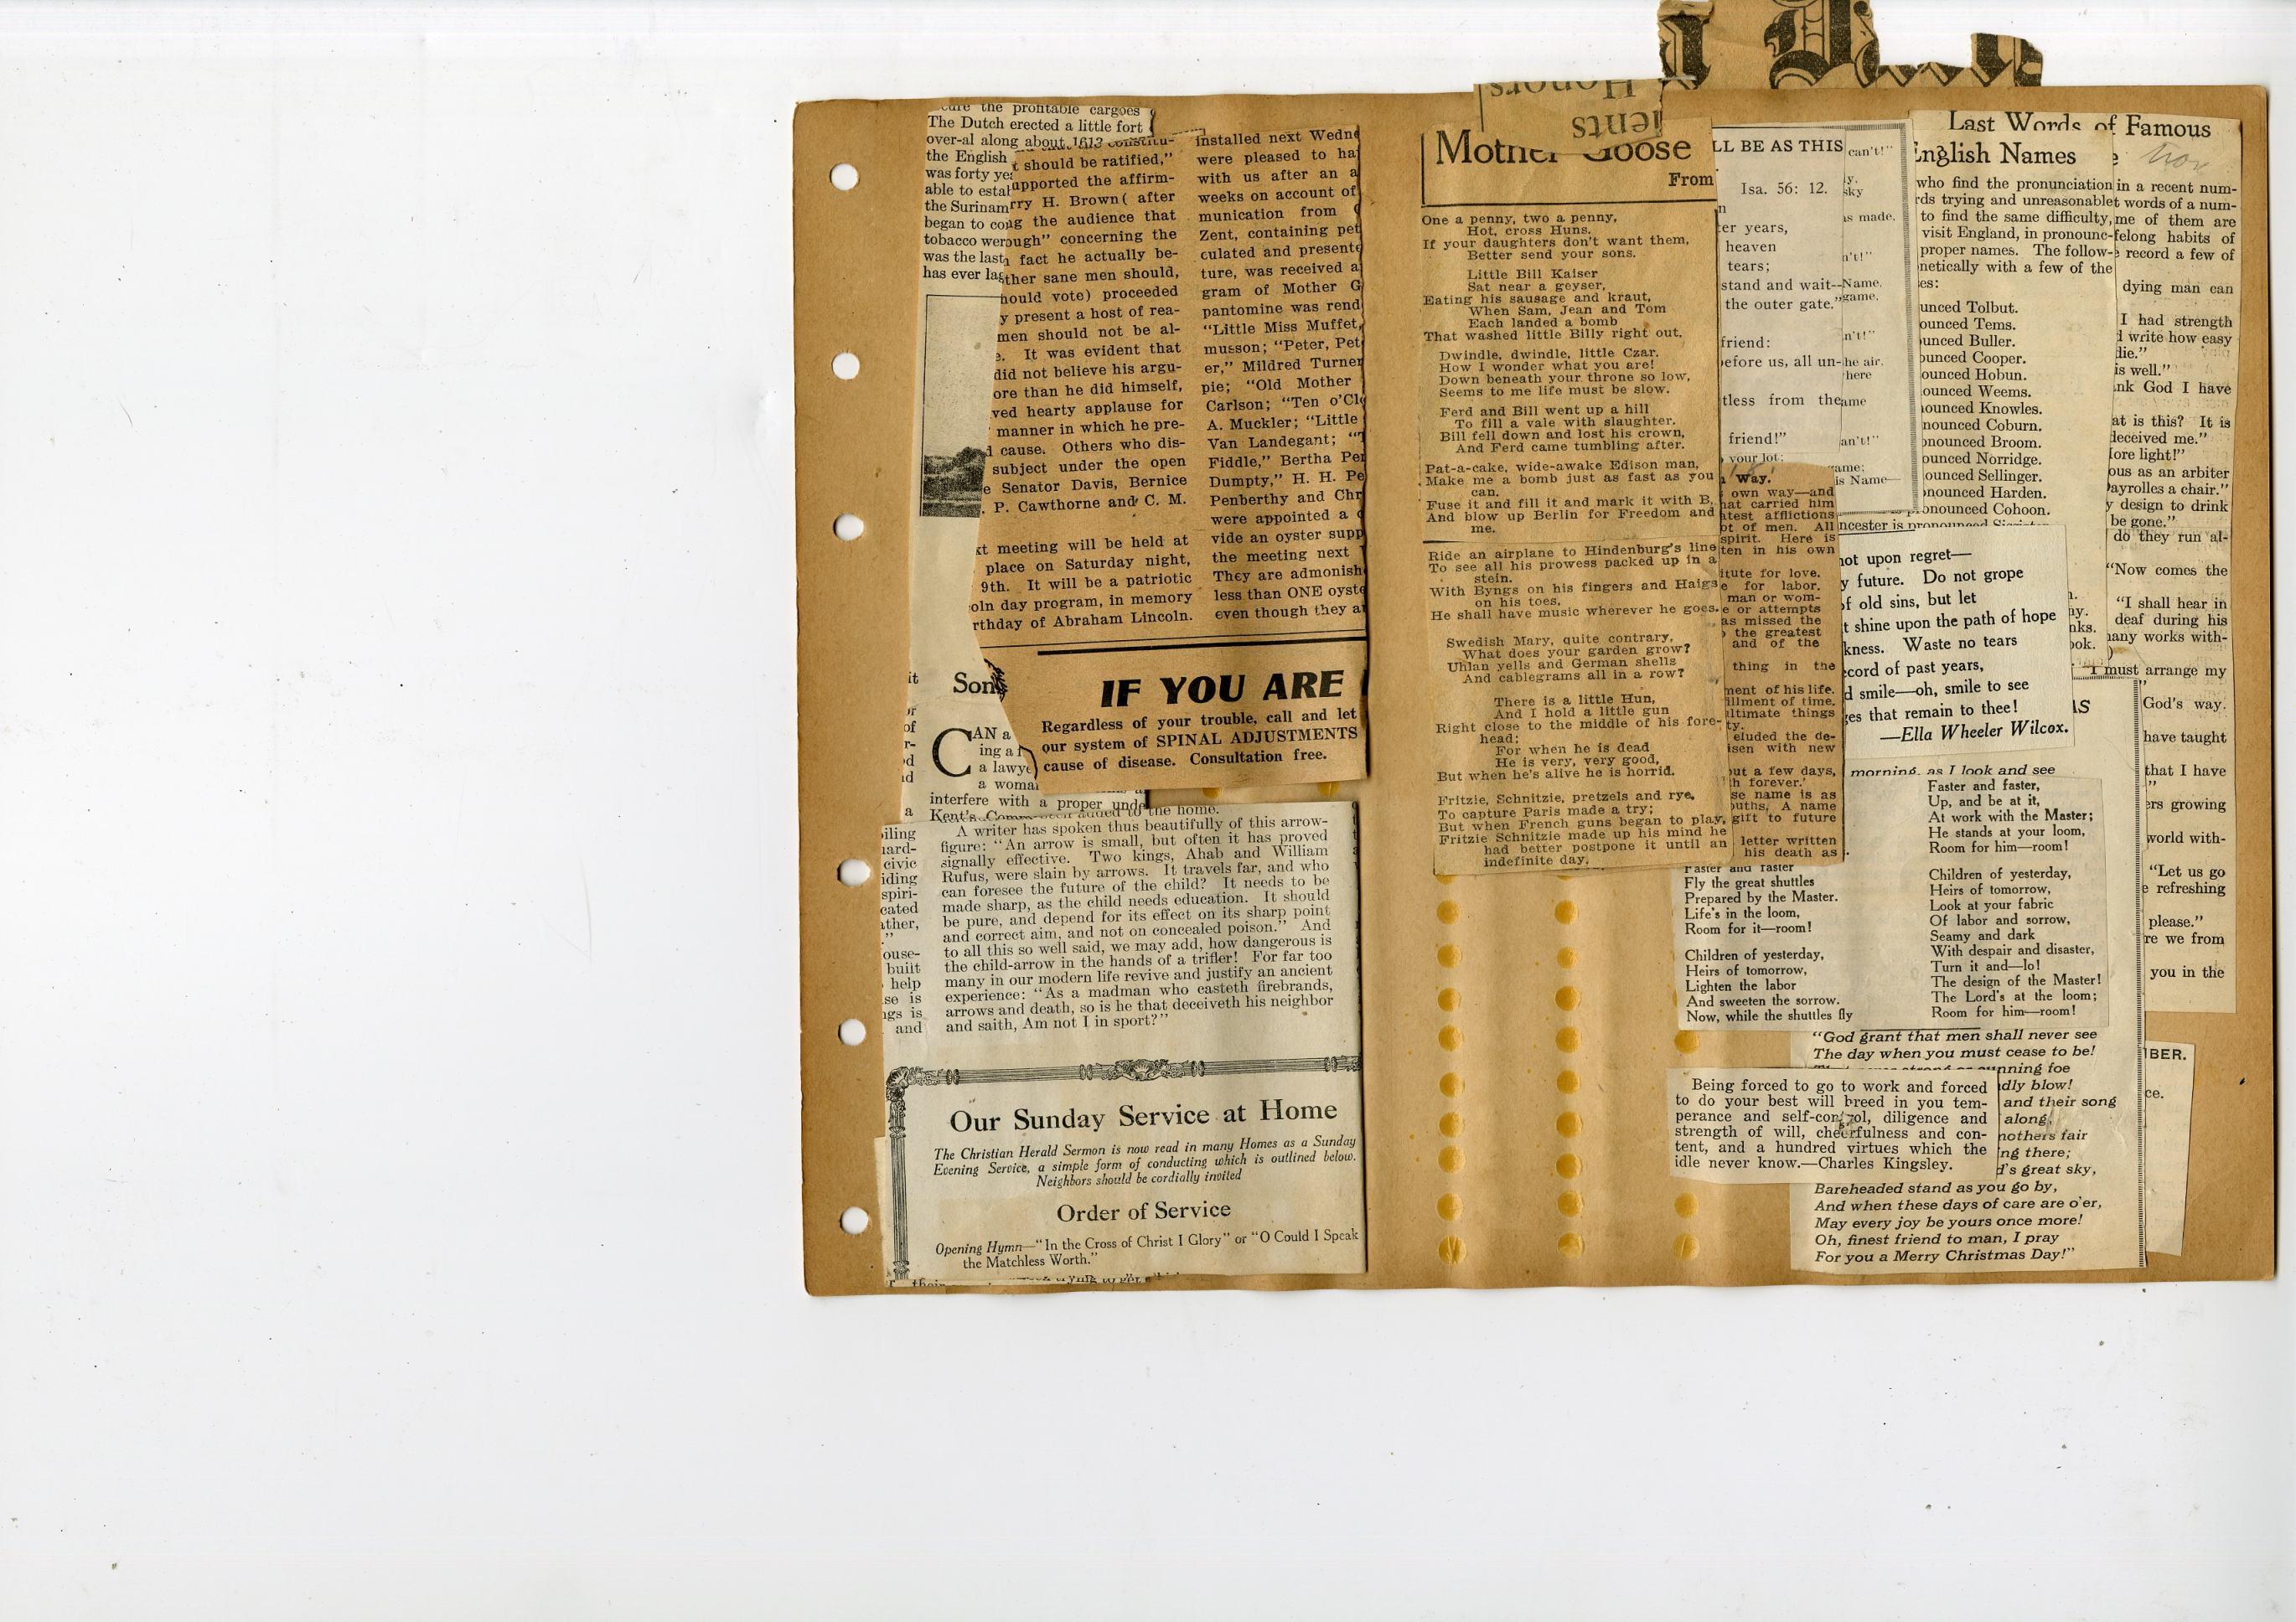 cure the profitable cargoes
The Dutch erected a little fort
over-al along about 1613 constitu-
the English
was forty
able to
the Surinam
began to
tobacco
was the last
has ever
t should be ratified,"
upported the affirm-
rry H. Brown( after
ng the audience that
ough" concerning the
fact he actually be-
ther sane men should,
hould vote) proceeded
y present a host of rea-
men should not be al-
e. It was evident that
did not believe his argu-
ore than he did himself,
ved hearty applause for
manner in which he pre-
d cause. Others who dis-
subject under the open
e Senator Davis, Bernice
. P. Cawthorne and C. M.
xt meeting will be held at
place on Saturday night,
9th. It will be a patriotic
oln day program, in memory
rthday of Abraham Lincoln.
installed next Wedne
were pleased to ha
with us after an a
weeks on account of
munication from
Zent, containing pet
culated and presente
ture, was received a
gram of Mother G
pantomine was rend
"Little Miss Muffet,
musson; "Peter, Pet
er," Mildred Turner
pie; "Old Mother
Carlson; "Ten o'Clo
A. Muckler; "Little
Van Landegant; "T
Fiddle," Bertha Per
Dumpty," H. H. Pe
Penberthy and Chr
were appointed a c
vide an oyster supp
the meeting next
They are admonish
less than ONE oyste
even though they a
IF YOU ARE
Regardless of your trouble, call and let
our system of SPINAL ADJUSTMENTS
cause of disease. Consultation free.
it
or
of
r-
d
d
a
Son
CAN a
ing a
a lawye
a woman
interfere with a proper unde the home.
Kent's
iling
hard-
civic
iding
spiri-
cated
ather,
."
ouse-
built
help
se is
ngs is
and
A writer has spoken thus beautifully of this arrow-
figure: "An arrow is small, but often it has proved
signally effective. Two kings, Ahab and William
Rufus, were slain by arrows. It travels far, and who
can foresee the future of the child? It needs to be
made sharp, as the child needs education. It should
be pure, and depend for its effect on its sharp point
and correct aim, and not on concealed poison." And
to all this so well said, we may add, how dangerous is
the child-arrow in the hands of a trifler! For far too
many in our modern life revive and justify an ancient
experience: "As a madman who casteth firebrands,
arrows and death, so is he that deceiveth his neighbor
and saith, Am not I in sport?"
Our Sunday Service at Home
The Christian Herald Sermon is now read in many Homes as a Sunday
Evening Service, a simple form of conducting which is outlined below.
Neighbors should be cordially invited
Order of Service
Opening Hymn—"In the Cross of Christ I Glory" or "O Could I Speak
the Matchless Worth."
Honors
ients
Mother Goose
From
One a penny, two a penny,
Hot, cross Huns.
If your daughters don't want them,
Better send your sons.
Little Bill Kaiser
Sat near a geyser,
Eating his sausage and kraut,
When Sam, Jean and Tom
Each landed a bomb
That washed little Billy right out.
Dwindle, dwindle, little Czar.
How I wonder what you are!
Down beneath your throne so low,
Seems to me life must be slow.
Ferd and Bill went up a hill
To fill a vale with slaughter.
Bill fell down and lost his crown,
And Ferd came tumbling after.
Pat-a-cake, wide-awake Edison man,
Make me a bomb just as fast as you
can.
Fuse it and fill it and mark it with B,
And blow up Berlin for Freedom and
me.
Ride an airplane to Hindenburg's line
To see all his prowess packed up in a
stein.
With Byngs on his fingers and Haigs
on his toes,
He shall have music wherever he goes.
Swedish Mary, quite contrary,
What does your garden grow?
Uhlan yells and German shells
And cablegrams all in a row?
There is a little Hun,
And I hold a little gun
Right close to the middle of his fore-
head;
For when he is dead
He is very, very good,
But when he's alive he is horrid.
Fritzie, Schnitzie, pretzels and rye,
To capture Paris made a try;
But when French guns began to play,
Fritzie Schnitzie made up his mind he
had better postpone it until an
indefinite day.
LL BE AS THIS
Isa. 56: 12.
n
er years,
heaven
tears;
stand and wait--
the outer gate."
friend:
efore us, all un-
tless from the
friend!"
your lot;
can't!"
y.
sky
is made.
n't!"
Name.
game.
n't!"
he air.
here
ame
an't!"
game;
is Name—
Way.
own way—and
hat carried him
atest afflictions
ot of men. All
spirit. Here is
ten in his own
itute for love.
e for labor.
man or wom-
e or attempts
as missed the
the greatest
and of the
thing in the
ment of his life.
illment of time.
ultimate things
ty.
eluded the de-
isen with new
out a few days,
h forever.'
se name is as
ouths, A name
gift to future
letter written
his death as
English Names
who find the pronunciation
rds trying and unreasonable
to find the same difficulty,
visit England, in pronounc-
proper names. The follow-
netically with a few of the
es:
unced Tolbut.
ounced Tems.
ounced Buller.
ounced Cooper.
ounced Hobun.
ounced Weems.
nounced Knowles.
nounced Coburn.
onounced Broom.
ounced Norridge.
ounced Sellinger.
onounced Harden.
onounced Cohoon.
ncester is pronounced
Last Words of Famous
in a recent num-
t words of a num-
me of them are
felong habits of
e record a few of
dying man can
I had strength
d write how easy
die."
is well."
nk God I have
at is this? It is
deceived me."
ore light!"
ous as an arbiter
Payrolles a chair."
y design to drink
be gone."
do they run al-
"Now comes the
"I shall hear in
deaf during his
many works with-
)
"I must arrange my
"
God's way.
have taught
that I have
"
ers growing
world with-
"Let us go
e refreshing
please."
re we from
you in the
not upon regret—
y future. Do not grope
of old sins, but let
t shine upon the path of hope
kness. Waste no tears
cord of past years,
d smile—oh, smile to see
ges that remain to thee!
—Ella Wheeler Wilcox.
n.
ny.
nks.
ook.
AS
morning, as I look and see
Faster and faster
Fly the great shuttles
Prepared by the Master.
Life's in the loom,
Room for it—room!
Children of yesterday,
Heirs of tomorrow,
Lighten the labor
And sweeten the sorrow.
Now, while the shuttles fly
Faster and faster,
Up, and be at it,
At work with the Master;
He stands at your loom,
Room for him—room!
Children of yesterday,
Heirs of tomorrow,
Look at your fabric
Of labor and sorrow,
Seamy and dark
With despair and disaster,
Turn it and—lo!
The design of the Master!
The Lord's at the loom;
Room for him—room!
"God grant that men shall never see
The day when you must cease to be!
cunning foe
dly blow!
and their song
along,
mothers fair
ng there;
d's great sky,
Bareheaded stand as you go by,
And when these days of care are o'er,
May every joy be yours once more!
Oh, finest friend to man, I pray
For you a Merry Christmas Day!"
Being forced to go to work and forced
to do your best will breed in you tem-
perance and self-control, diligence and
strength of will, cheerfulness and con-
tent, and a hundred virtues which the
idle never know.—Charles Kingsley.
BER.
ce.